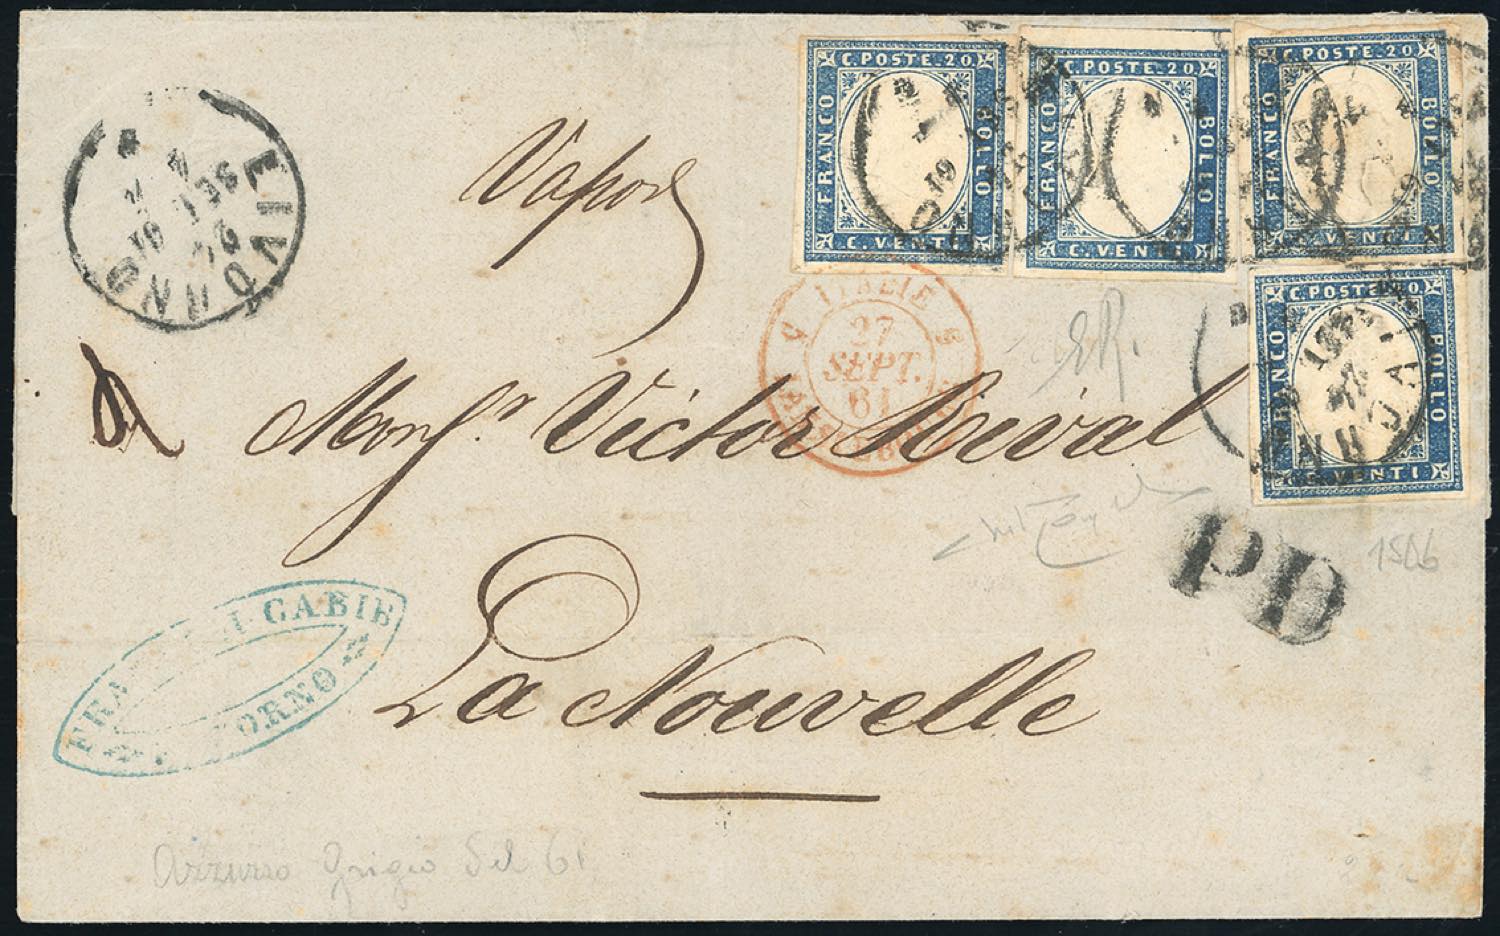 C. POSTE. 20.
FRANCO
BOLLO
C. VENTI
C. POSTE. 20.
FRANCO
BOLLO
C. VENTI
C. POSTE. 20.
FRANCO
BOLLO
C. VENTI
C. POSTE. 20.
FRANCO
BOLLO
C. VENTI
LIVORNO
24
SET
61
Vapore
ITALIE
27
SEPT.
61
Monsr Victor Rival
La Nouvelle
PD
1506
GABIE
Azzurro Grigio del 61